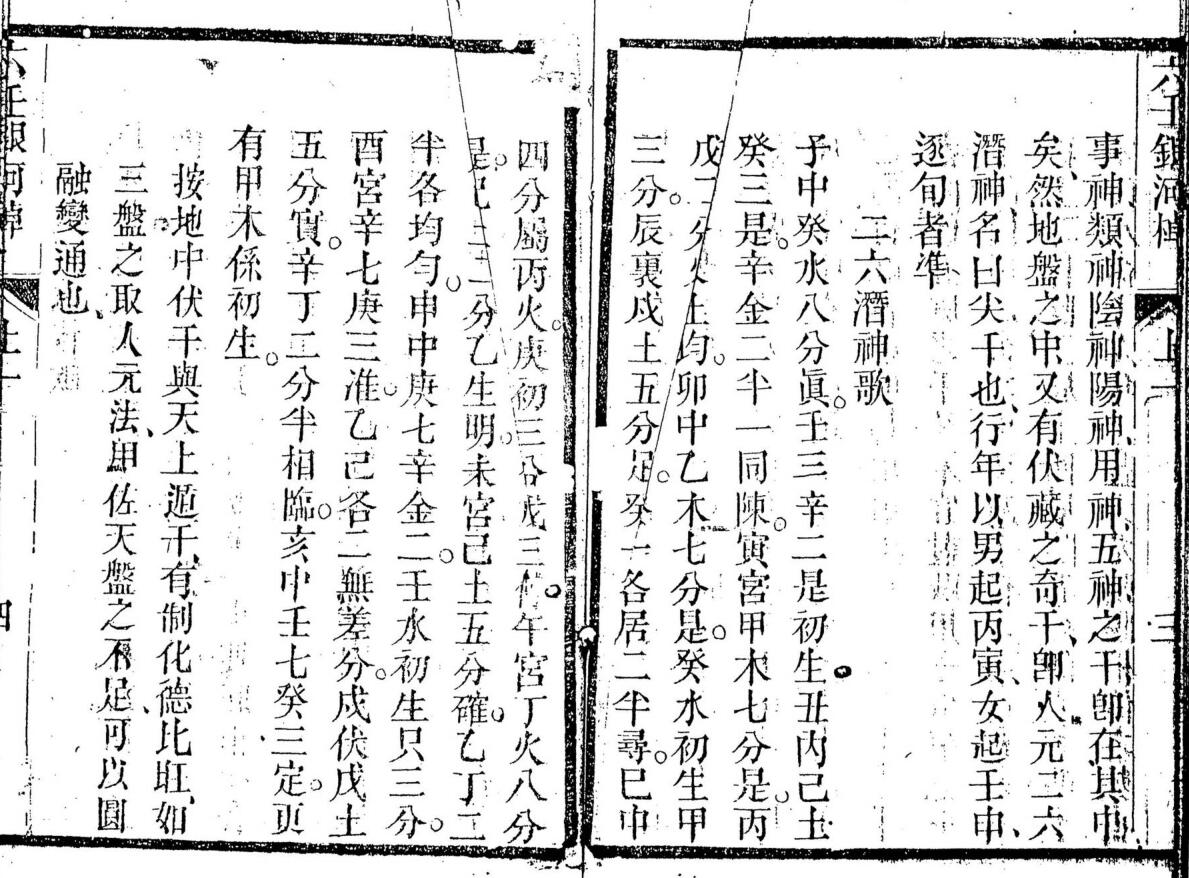 六壬銀河棹
上
三
事神類神陰神陽神用神、五神之干卽在其中
矣、然地盤之中、又有伏藏之奇干、卽人元二六
潛神名曰尖干也、行年以男起丙寅、女起壬申、
逐旬者準
二六潛神歌
子中癸水八分眞。壬三辛二是初生。丑內己土
癸三是。辛金二半一同陳。寅宮甲木七分是。丙
戊二分火土均。卯中乙木七分是。癸水初生甲
三分。辰裏戍土五分足。癸一各居二半尋。巳中
四分屬丙火。庚初三分戊三。午宮丁火八分
是。己二一分乙生明。未宮己土五分確。乙丁二
半各均勻。申中庚七辛金二。壬水初生只三分。
酉宮辛七庚三准。乙己各二無差分。戍伏戊土
五分實。辛丁二分半相臨。亥中壬七癸三定。更
有甲木係初生。
按地中伏干與天上遁干、有制化德比旺、如
三盤之取人元法、用佐天盤之不足、可以圓
融變通也、
六壬銀河棹
上
四